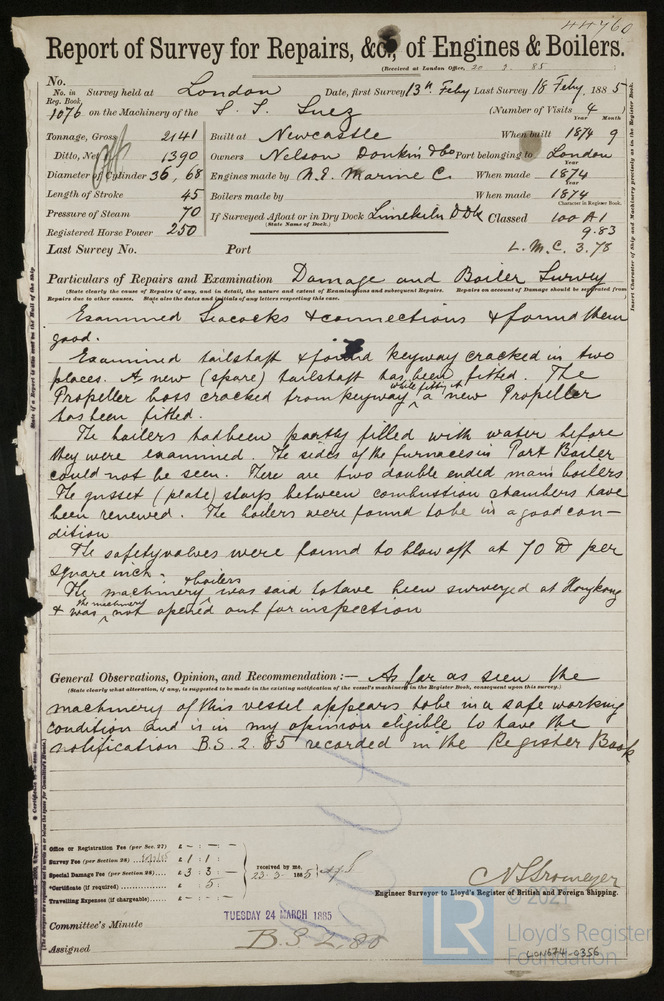 44760
Report of Survey for Repairs, &c., of Engines & Boilers.
(Received at London Office, 20 2 85
No.
No. in Reg. Book. Survey held at London Date, first Survey 13th Feby Last Survey 18 Feby. 1885
1076 on the Machinery of the S. S. Suez (Number of Visits 4)
Year Month
Tonnage, Gross 2141 Built at Newcastle When built 1874 9
Ditto, Net 1390 Owners Nelson Donkin & Co Port belonging to London
Year
Diameter of Cylinder 36, 68 Engines made by N. E. Marine C. When made 1874
Year
Length of Stroke 45 Boilers made by When made 1874
Character in Register Book.
Pressure of Steam 70 If Surveyed Afloat or in Dry Dock Limekiln D Dk Classed 100 A1
(State Name of Dock.)
Registered Horse Power 250 9.83
Last Survey No. Port L. M. C. 3.78
Particulars of Repairs and Examination Damage and Boiler Survey
(State clearly the cause of Repairs if any, and in detail, the nature and extent of Examinations and subsequent Repairs. Repairs on account of Damage should be separated from
Repairs due to other causes. State also the dates and initials of any letters respecting this case.
Examined Seacocks & connections & found them
good.
Examined tailshaft & found keyway cracked in two
places. A new (spare) tailshaft has been fitted. The
Propeller boss cracked from keyway while fitting it a new Propeller
has been fitted.
The boilers had been partly filled with water before
they were examined. The sides of the furnaces in Port Boiler
could not be seen. There are two double ended main boilers
The gusset (plate) stays between combustion chambers have
been renewed. The boilers were found to be in a good con-
dition
The safetyvalves were found to blow off at 70 lb per
square inch.
The machinery & boilers was said to have been surveyed at Hongkong
& the machinery was not opened out for inspection
General Observations, Opinion, and Recommendation :— As far as seen the
(State clearly what alteration, if any, is suggested to be made in the existing notification of the vessel's machinery in the Register Book, consequent upon this survey.)
machinery of this vessel appears to be in a safe working
condition and is in my opinion eligible to have the
notification B.S. 2. 85 recorded in the Register Book
Office or Registration Fee (per Sec. 27) £ - : - : -
Survey Fee (per Section 28) £ 1 : 1 :
Special Damage Fee (per Section 28) £ 3 : 3 : -
*Certificate (if required) : 5 :
Travelling Expenses (if chargeable) £ - : - : -
received by me,
23-3- 1885
Engineer Surveyor to Lloyd's Register of British and Foreign Shipping.
TUESDAY 24 MARCH 1885
Committee's Minute
Assigned B.S 2, 85
© 2021
LR
Lloyd's Register
Foundation
LON674-0356
Insert Character of Ship and Machinery precisely as in the Register Book.